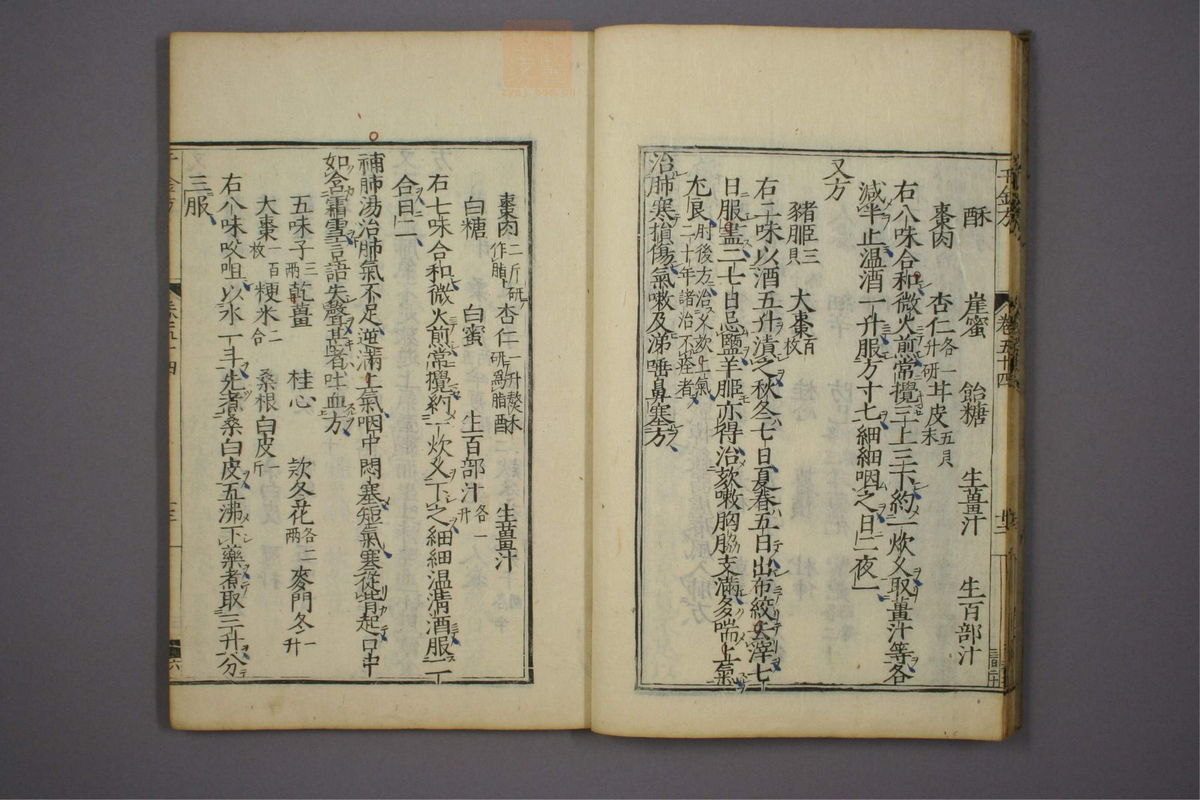 酥　崖蜜　飴糖　生薑汁　生百部汁
棗肉　杏仁各一升研　茸皮五貝末
右八味合和微火煎常攪三上三下約一炊久取薑汁等各
減半止温酒一升服方寸匕細細咽之日二夜一
又方
豬胵三貝　大棗百枚
右二味以酒五升漬之秋冬七日夏春五日出布絞去滓七
日服盡二七日忌鹽羊胵亦得治欬嗽胸脇支滿多喘上氣
尤良肘後方治久欬上氣二十年諸治不瘥者
治肺寒損傷氣嗽及涕唾鼻塞方
棗肉二斤研作脂　杏仁一升熬研爲脂　酥　生薑汁
白糖　白蜜　生百部汁各一升
右七味合和微火煎常攪約一炊久下之細細温清酒服二
合日二
補肺湯治肺氣不足逆滿上氣咽中悶塞短氣寒從背起口中
如含霜雪言語失聲甚者吐血方
五味子三兩　乾薑　桂心　款冬花各二兩　麥門冬一升
大棗一百枚　粳米二合　桑根白皮一斤
右八味㕮咀以水一斗先煮桑白皮五沸下藥煮取三升分
三服